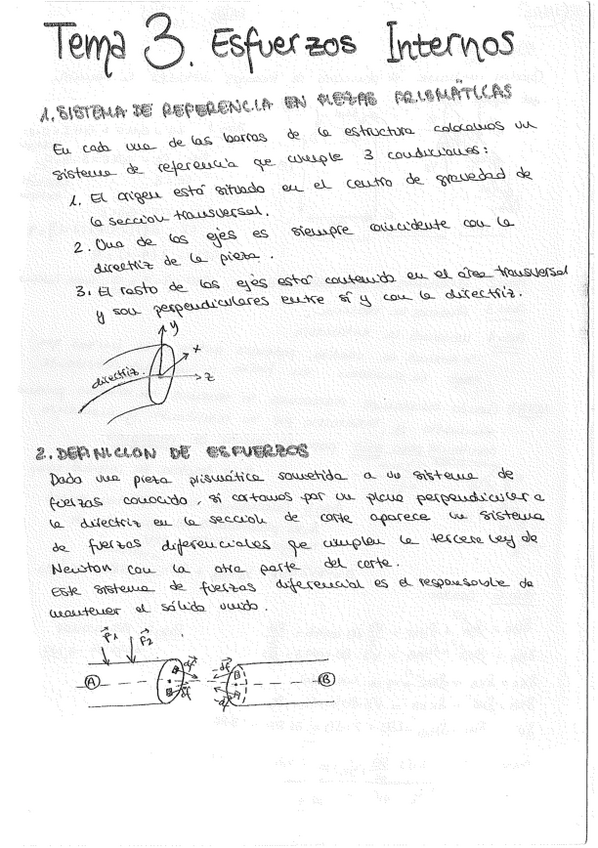 Tema 3. Esfuerzos Internos
1. SISTEMA DE REFERENCIA EN PIEZAS PRISMÁTICAS
En cada una de las barras de la estructura colocamos un
sistema de referencia que cumple 3 condiciones:
1. El origen está situado en el centro de gravedad de
la sección transversal.
2. Uno de los ejes es siempre coincidente con la
directriz de la pieza.
3. El resto de los ejes está contenido en el área transversal
y son perpendiculares entre sí y con la directriz.
y
x
directriz.
z
2. DEFINICION DE ESFUERZOS
Dada una pieza prismática sometida a un sistema de
fuerzas conocido, si cortamos por un plano perpendicular a
la directriz en la sección de corte aparece un sistema
de fuerzas diferenciales que cumplen la tercera ley de
Newton con la otra parte del corte.
Este sistema de fuerzas diferencial es el responsable de
mantener el sólido unido.
F1 F2
A A dF -dF B B
B dF -dF A